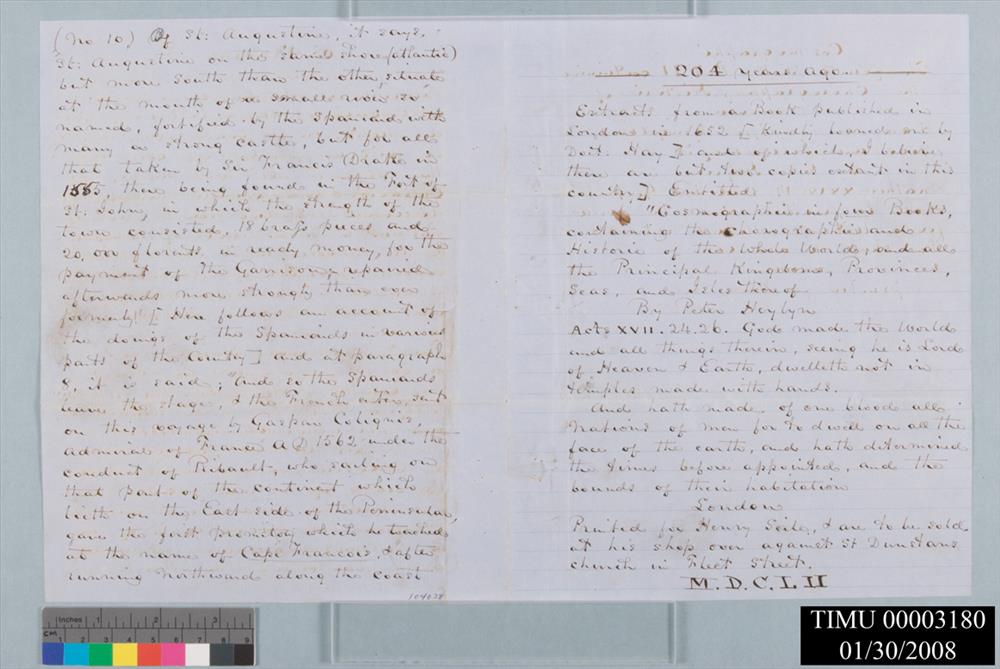 (No 10) Of St: Augustine, it says.
St: Augustine on the same shore (atlantic)
but more South than the other, situate
at the mouth of a small river so
named, fortified by the Spaniard with
many a strong Castle, but for all
that taken by Sir Francis Drake in
1585 there being found in the Fort of
St. John, in which the strength of the
town consisted, 18 brass pieces and
20,000 florents in ready money, for the
payment of the Garrison, repaired
afterwards more strongly than ever
formerly! [Here follows an account of
the doings of the Spaniards in various
parts of the Country] and at paragraph
8, it is said; "And so the Spaniards
leave the stage, & the French enter, sent
on this voyage by Gaspar Colignie,
admiral of France AD 1562 under the
conduit of Ribault, who sailing on
that part of the continent which
lieth on the East side of the Peninsular,
gave the first promitory which he touched
at the name of Cape Francois, & after
running Northward along the coast
104028
204 years ago
Extracts from a Book published in
London in 1652 [Kindly loaned me by
Doct. Hay] and of which I believe
there are but two copies extant in this
country.] Entitled
"Cosmographie in four Books,
containing the Chorographie and
Historie of the whole World, and all
the Principal Kingdoms, Provinces,
Seas, and Isles thereof
By Peter Heylyn
Acts XVII. 24.26. God made the World
and all things therein, seeing he is Lord
of Heaven & Earth, dwelleth not in
temples made with hands.
And hath made of one blood all
Nations of man for to dwell on all the
face of the earth, and hath determined
the times before appointed, and the
bounds of their habitation
London
Printed for Henry Seile, & are to be sold
at his shop over against St Dunstans
church in Fleet Street.
M.D.C.L II
Inches 1 2 3
CM 1 2 3 4 5 6 7 8 9
TIMU 00003180
01/30/2008